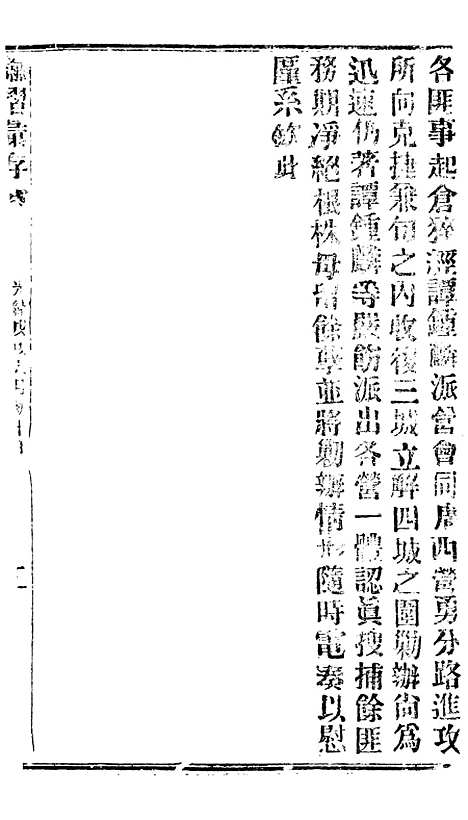 各匪事起倉猝經譚鍾麟派營會同唐西營勇分路進攻
所向克捷兼旬之內收復三城立解四城之圍勦辦尙爲
迅速仍著譚鍾麟等嚴飭派出各營一體認眞搜捕餘匪
務期淨絕根株毋留餘孽並將勦辦情形隨時電奏以慰
廑系欽此
諭習彙存
光緒戊戌